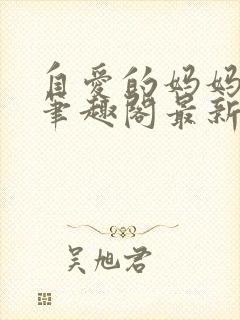 自爱的妈妈
笔趣阁最新
吴旭君